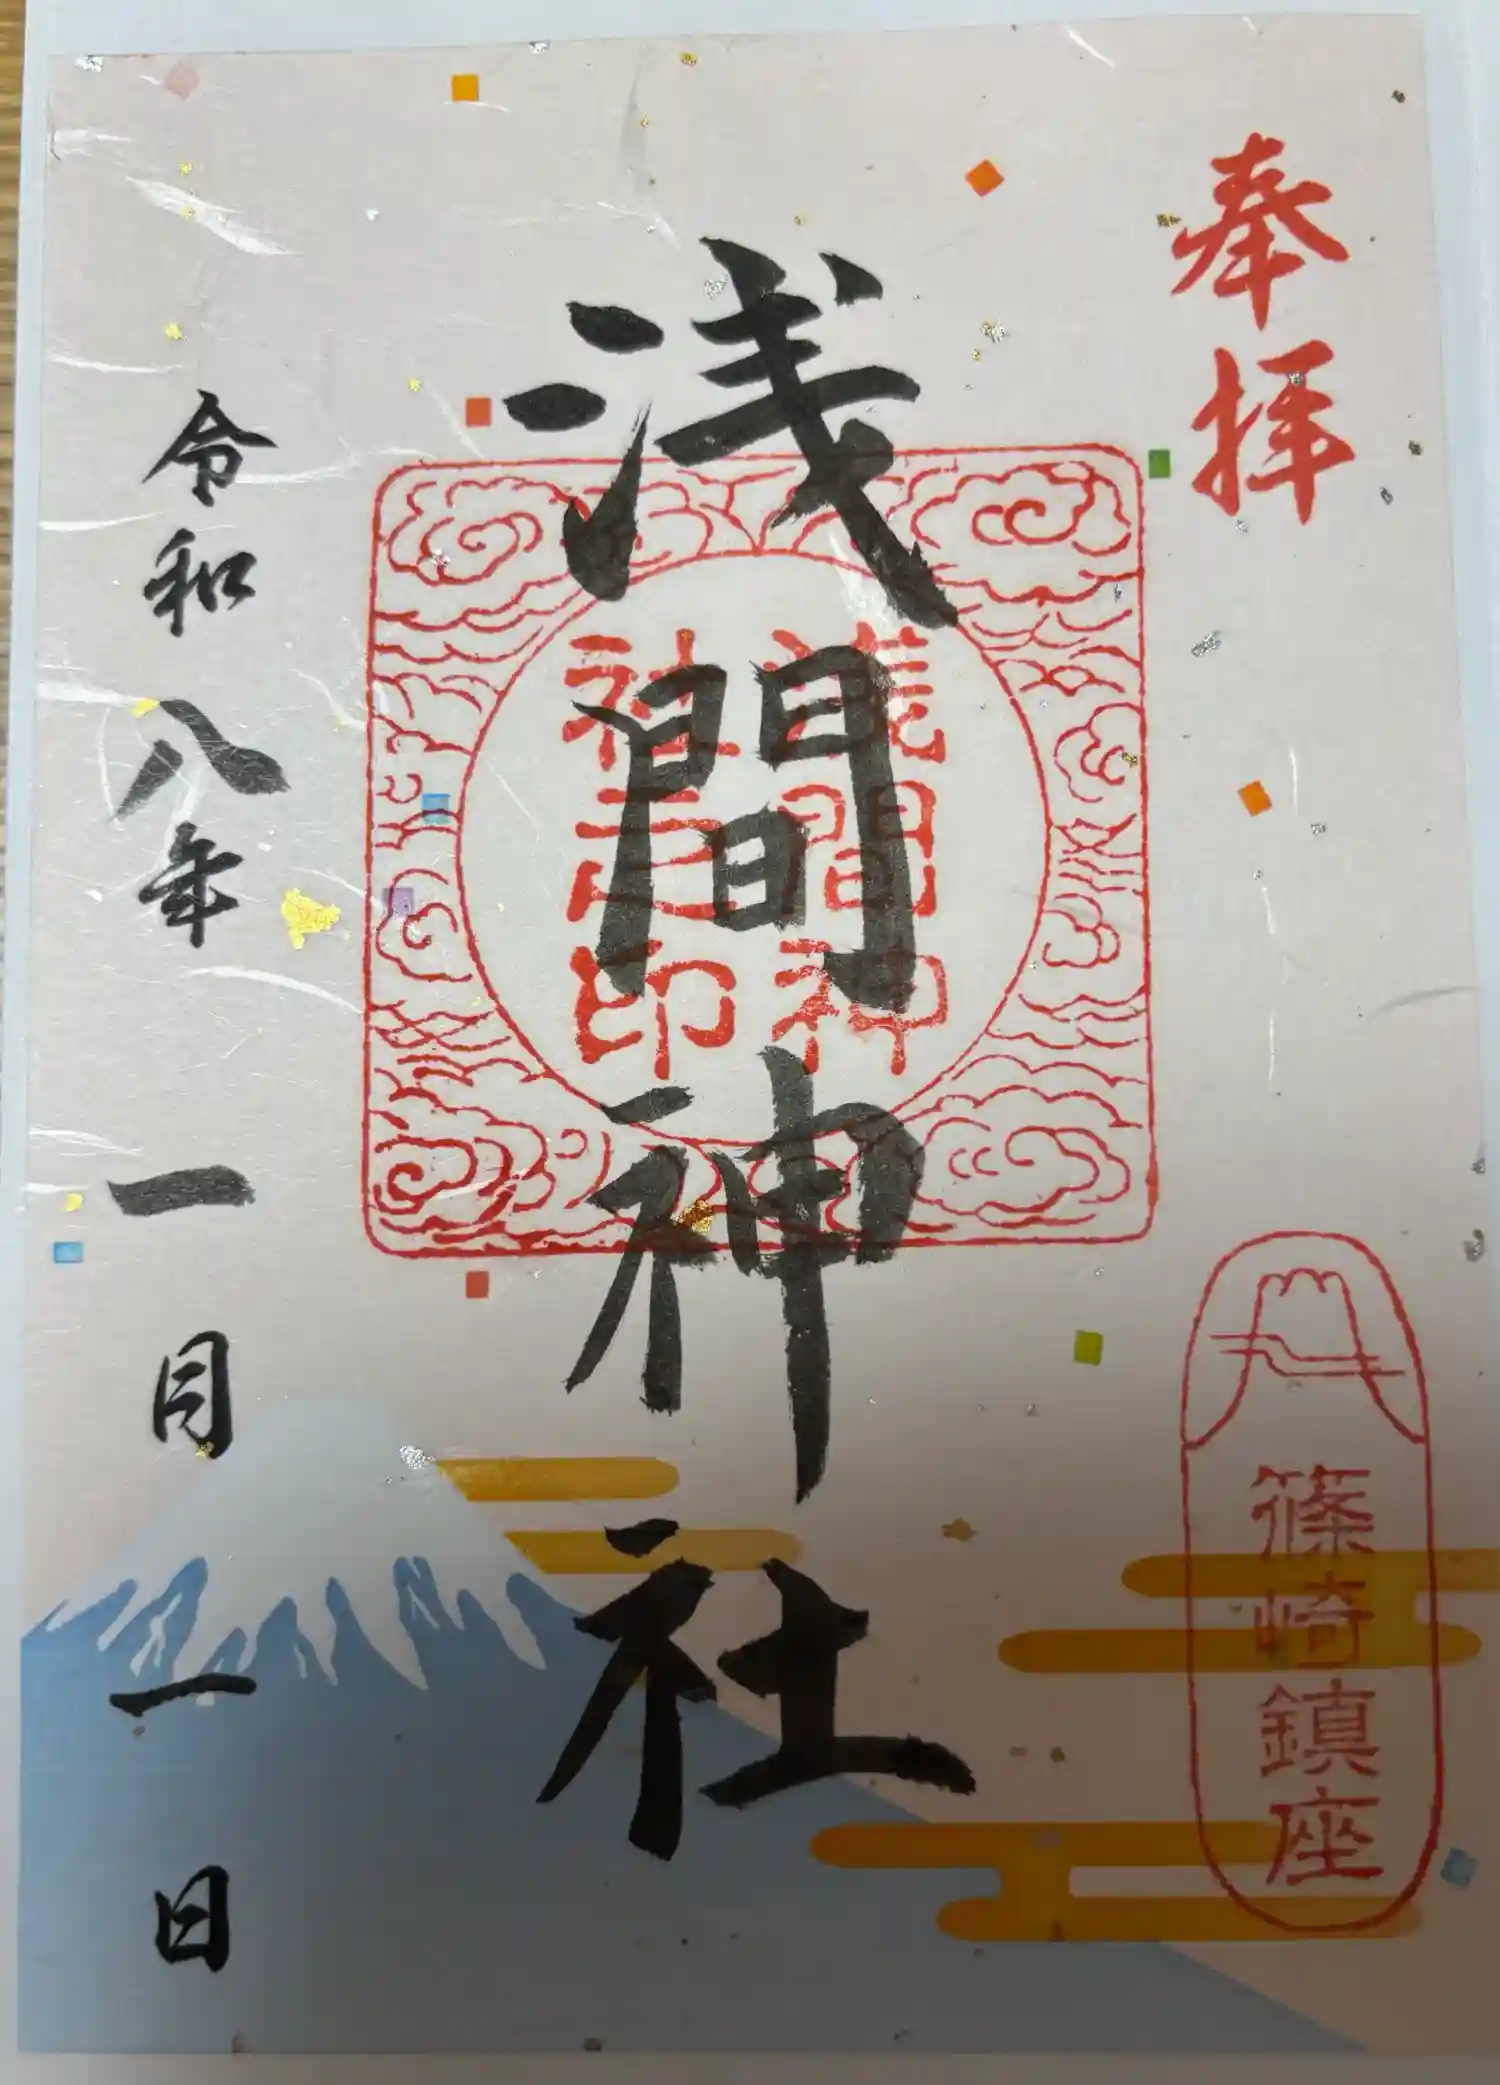 奉拝
篠崎鎮座
浅間神社
浅間神
社之印
令和八年一月一日